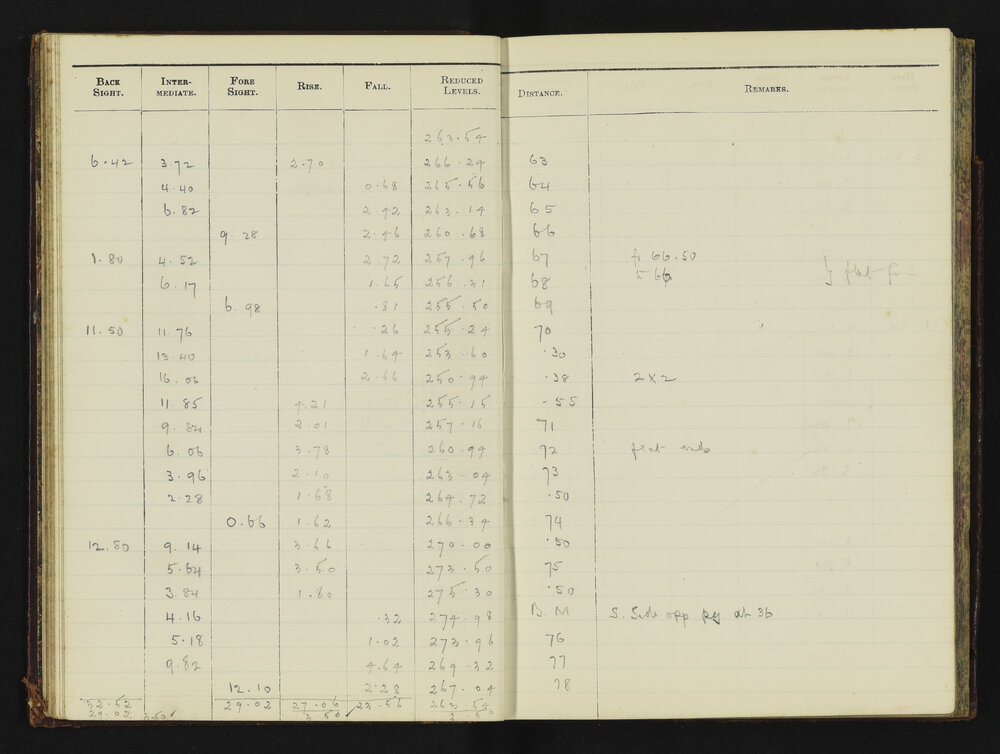 BACK SIGHT. INTER-MEDIATE. FORE SIGHT. RISE. FALL. REDUCED LEVELS. DISTANCE. REMARKS.
263.54
6.42 3.72 2.70 266.24 63
4.40 0.68 265.56 64
6.82 2.42 263.14 65
9.28 2.46 260.68 66
1.80 4.52 2.72 257.96 67 fr 66.50
6.17 1.65 256.31 68 } flat
6.98 .81 255.50 69
11.50 11.76 .26 255.24 70
13.40 1.64 253.60 .30
16.06 2.66 250.94 .38 2x2
11.85 4.21 255.15 .55
9.84 2.01 257.16 71
6.06 3.78 260.94 72 flat ends
3.96 2.10 263.04 73
2.28 1.68 264.72 .50
0.66 1.62 266.34 74
12.80 9.14 3.66 270.00 .50
5.64 3.50 273.50 75
3.84 1.80 275.30 .50
4.16 .32 274.98 B M S. Side opp peg at 36
5.18 1.02 273.96 76
9.82 4.64 269.32 77
12.10 2.28 267.04 78
32.52 29.02 27.06 23.56 263.54
29.02 3.50 3.50 3.50